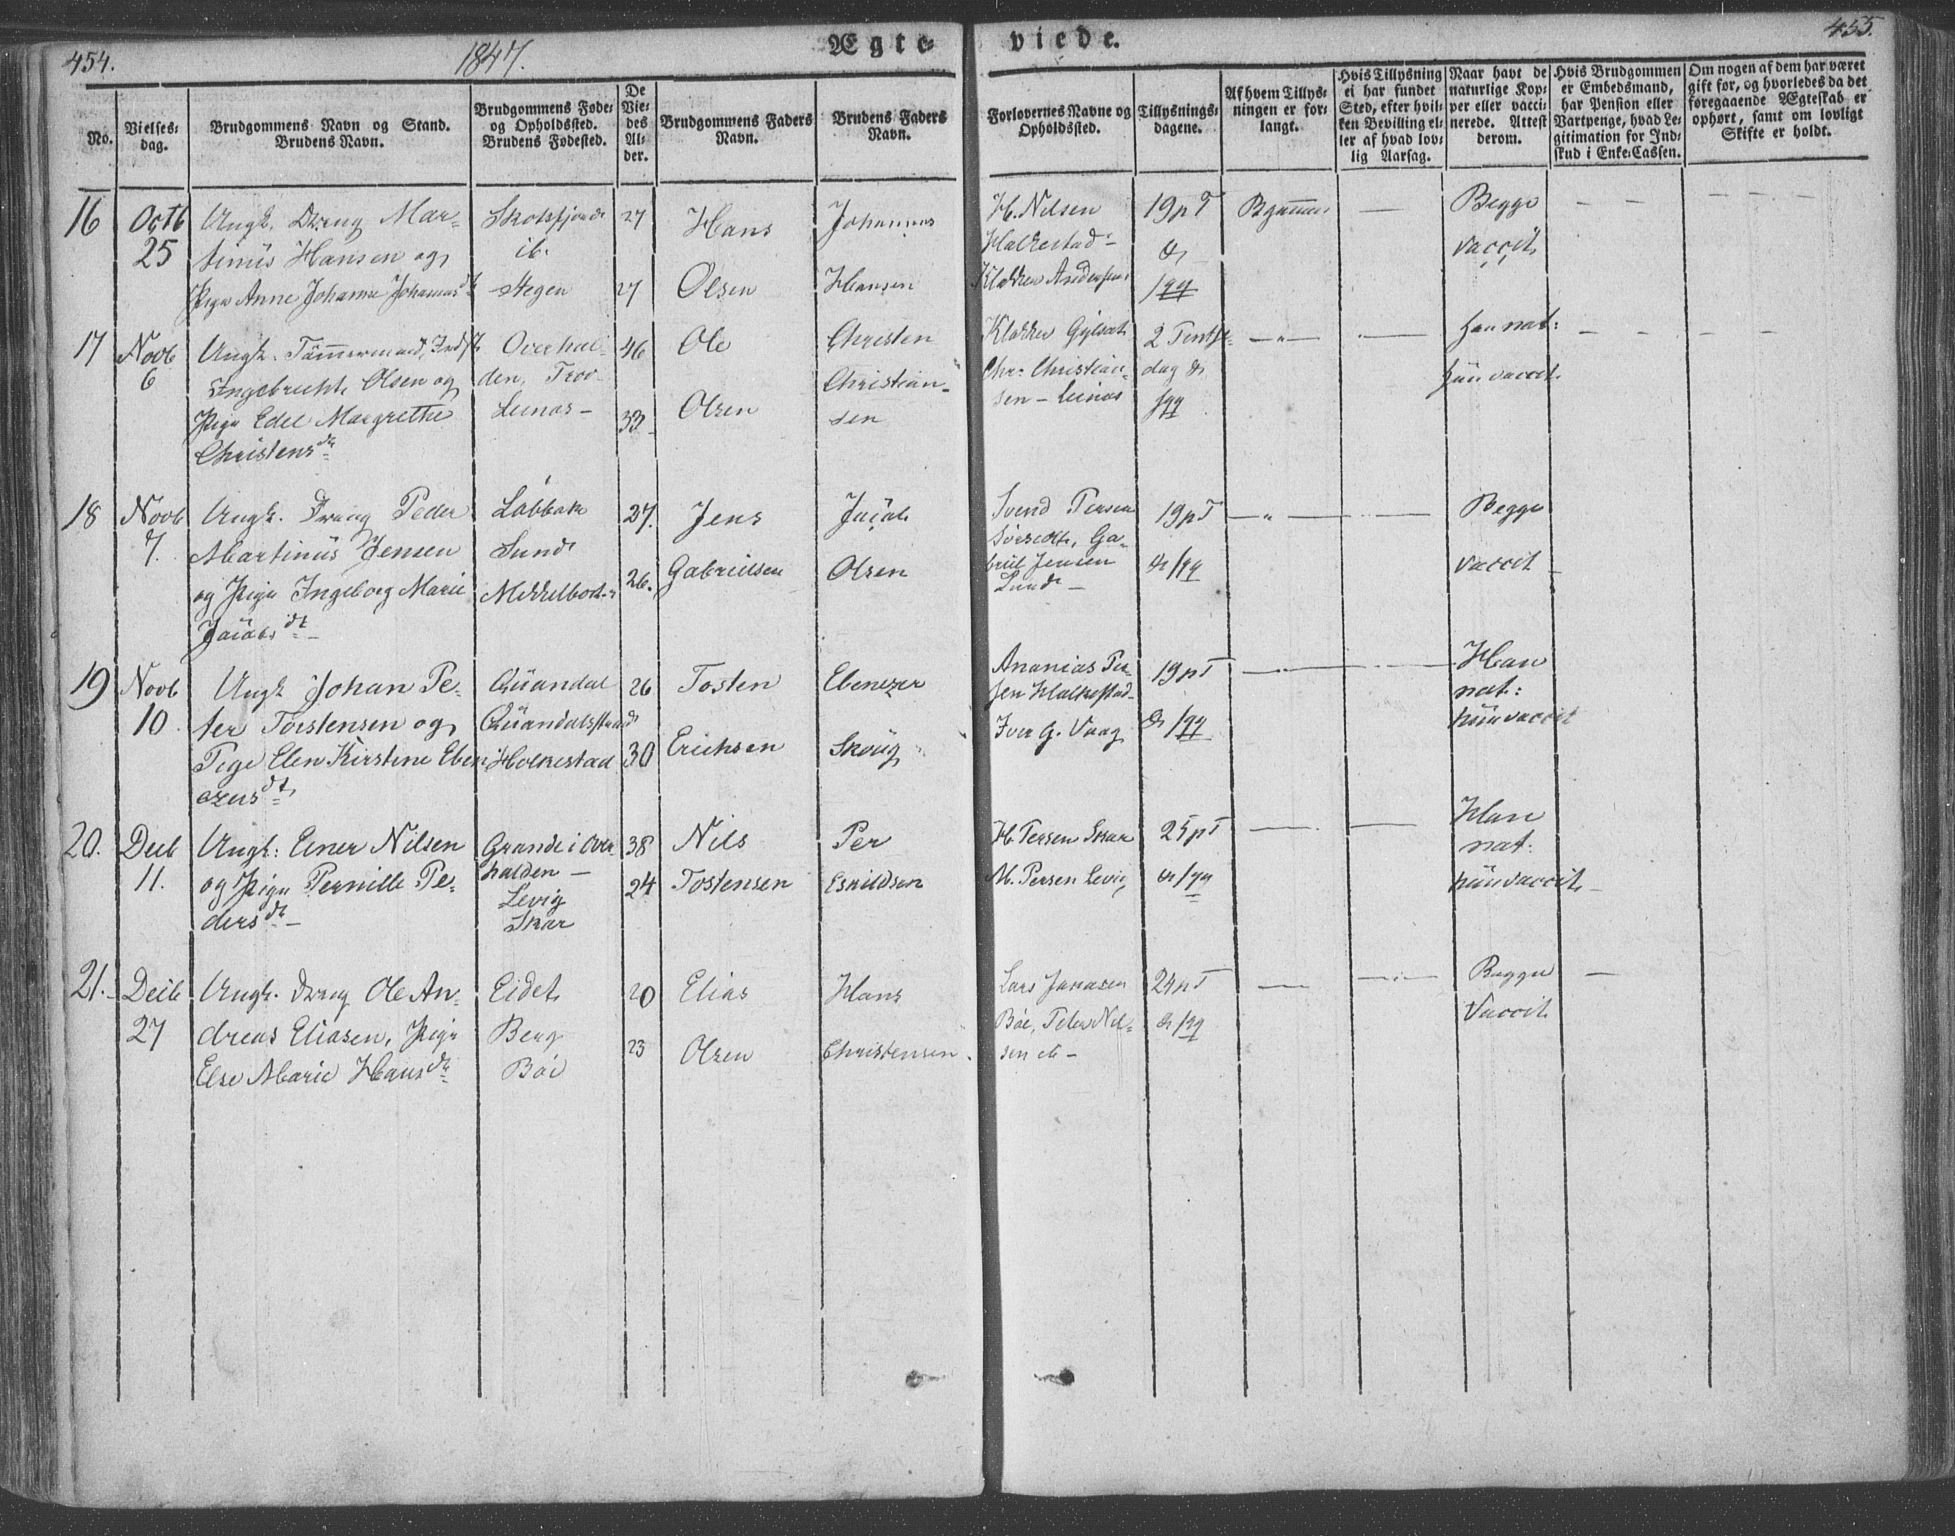 454.
1847.
Ægte-
viede.
455.
No.
Vielses-
dag.
Brudgommens Navn og Stand.
Brudens Navn.
Brudgommens Føde-
og Opholdssted.
Brudens Fødested.
De
Vie-
des
Al-
der.
Brudgommens Faders
Navn.
Brudens Faders
Navn.
Forlovernes Navne og
Opholdssted.
Tillysnings-
dagene.
Af hvem Tillys-
ningen er for-
langt.
Hvis Tillysning
ei har fundet
Sted, efter hvil-
ken Bevilling el-
ler af hvad lov-
lig Aarsag.
Naar havt de
naturlige Kop-
per eller vacci-
nerede. Attest
derom.
Hvis Brudgommen
er Embedsmand,
har Pension eller
Vartpenge, hvad Le-
gitimation for Ind-
skud i Enke-Cassen.
Om nogen af dem har været
gift før, og hvorledes da det
foregaaende Ægteskab er
ophørt, samt om lovligt
Skifte er holdt.
16
Octb
25
Ungk. Dreng Mar-
tinus Hansen og
Pige Anne Johanna Johannes dt
Skotsfjord
ib.
Stegen
27
27
Hans
Olsen
Johannes
Hansen
H. Nilsen
Halkestad
Klokker Andersen
19 p T
&
Bgummen
Begge
vaccit
17
Novb
6
Ungk. Tømmermand, Inds
Ingebrecht Olsen og
Pige Edel Margrethe
Christens dtr
Overhal-
den,
Leines -
46
33
Ole
Olsen
Christen
Christian-
sen
Klokker
Chr. Christian-
sen - Leines
2
dag &
han nat:
hun vaccit
18
Novb
7.
Ungk. Dreng Peder
Martinus Jensen
og Pige Ingeborg Marie
Jacobs dt -
Løbbak
Sund
27.
26.
Jens
Gabrielsen
Jacob
Olsen
Svend Persen
Ga-
briel Jensen
Sund -
19 p T
Begge
vaccit
19
Novb
10
Ungk Johan Pe-
ter Torstensen og
Pige Elen Kirstine Eben
ezers dt,
Qvandal
Qvandalsstrand
Holkestad
26
30
Tosten
Erichsen
Ebenezer
Skoug
Ananias Per-
sen Halkestad
Iver G. Vaag
19 p T
Han
nat:
hun vaccit
20.
Decb
11.
Ungk: Einer Nilsen
og Pige Pernille Pe-
ders dt -
Grande i Over
halden -
Levig
Skar
38
24
Nils
Tostensen
Per
Eskildsen
H. Persen Skar
M. Persen Levig
25 p T
Han
nat:
hun vaccit
21.
Decb
27
Ungk. Dreng Ole An-
dreas Eliasen, Pige
Else Marie Hans dtr
Eidet
Berg
Bøe
20
23
Elias
Olsen
Hans
Christensen.
Lars Jonasen
Bøe, Peter Nil-
sen ib -
24 p T
Begge
Vaccit